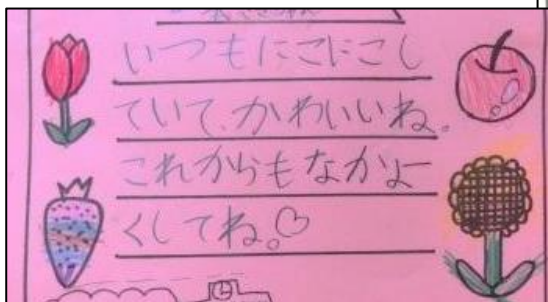 いつもにこにこし
ていて、かわいいね。
これからもなかよー
くしてね。♡